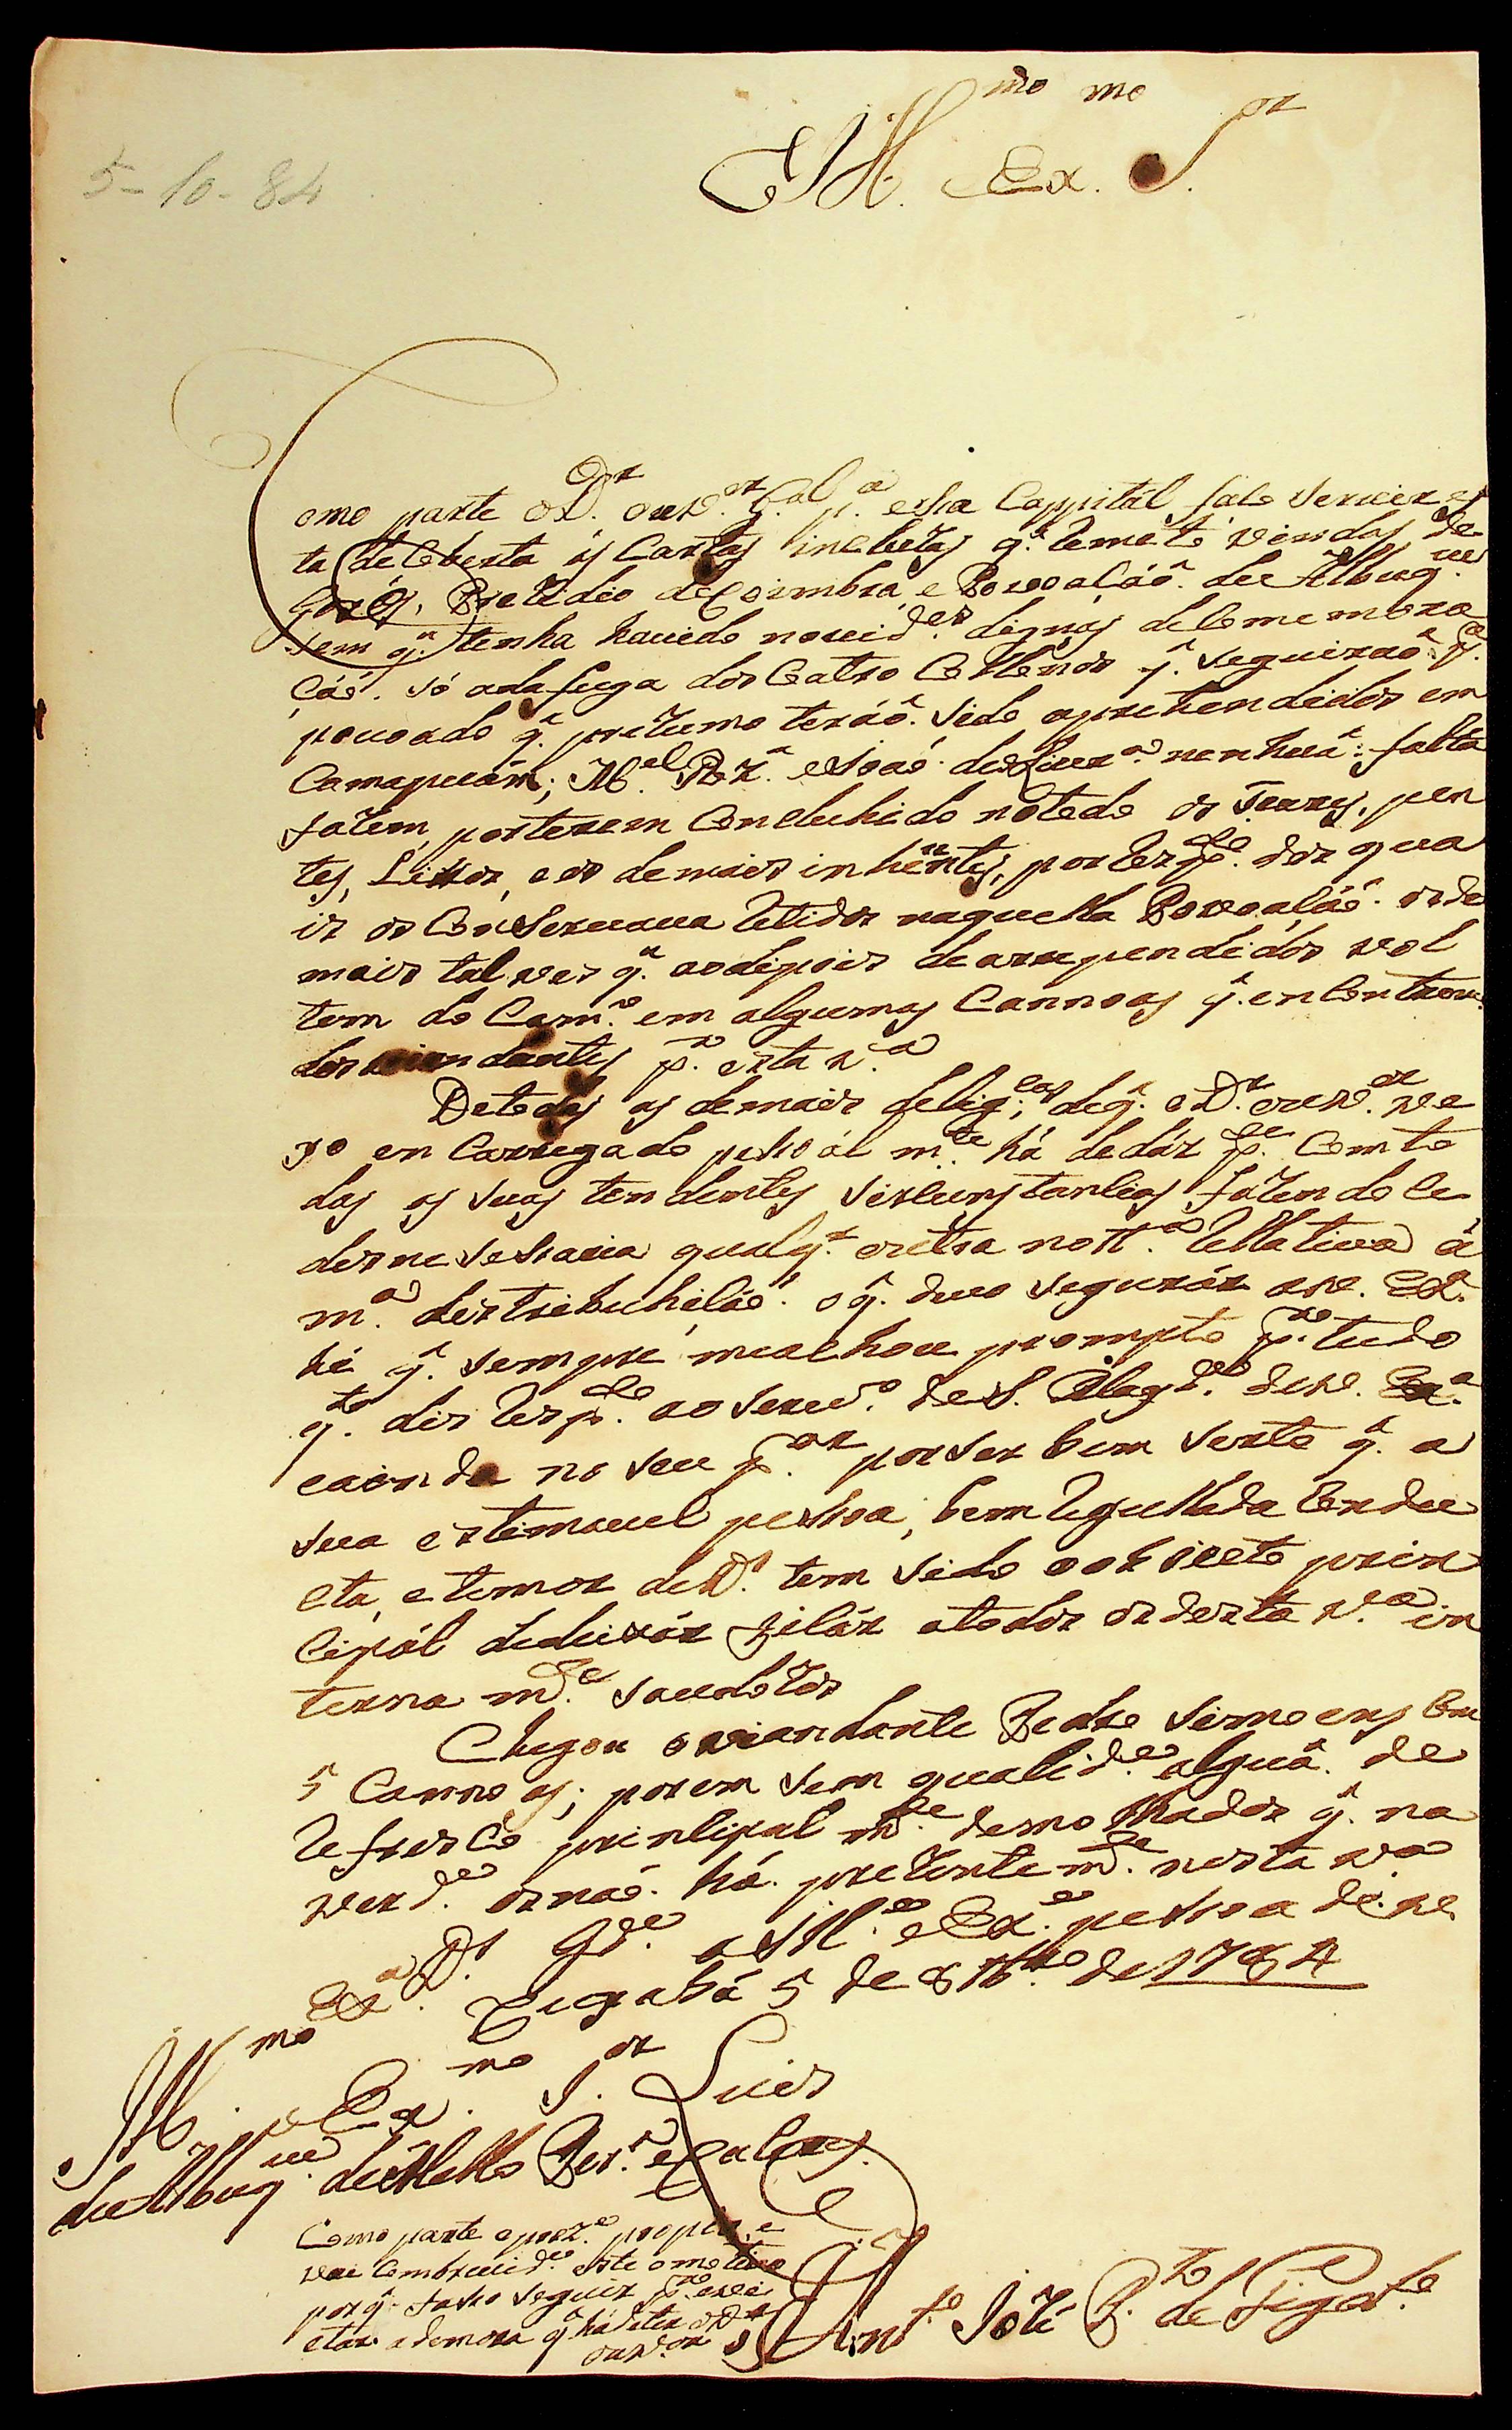 5-10-84
Ill.mo Ex.mo S.or
Como parte o D.r ouv.or g.al p.a essa Cappitál faço Serviren
ta de Coberta ás Cartas incluzas q̂. remete vindas de
Prezidio de Coimbra, e Povoaçáõ de Albuq.ue
sem q̂. tenha havido novid.es dignas de Comemora
çáõ. só a da fuga dos Catro Collonos q̂. seguiraõ p.a
povoado q̂. prezumo teráõ. Sido aprehendidos em
Camapuám; M.el Roiz̃. e Joaõ. de Oliver.a nenhuã: falta
fazem, por terem Concluhido no todo os Teares, pen
tes, Lissos, e os demais inherẽntes, por resp.to dos qua
is os Conservava retidos naquella Povoaçáõ. os de
mais tal ves q̂. ao dipois de arrependidos vol
tem do Cam.o em algumas Cannoas q̂. enContrem
dos viandantes p.a esta v.a
De todas as demais delig.cas de q̂. o D.r ouv.or ve
yo en Carregado pessoál m.te há de dár p.te Com to
das as suas tendentes Sircunstancias fazendo ce
des ne Sesraria qualq.r outra nott.a rellativa á
m.a distribuhiçáõ. o q̂. devo segurár a V. Ex.a
hé q̂. sempre me achou prompto p.a tudo
q.to dis resp.to ao serv.o de S. Mag.de de V. Ex.a
e ainda no seu p.ar por ser bem serto q̂. a
sua estimavel pessoa, bem regullada Condu
cta, e temor de D.s tem sido o objecto prin
cipál de deixár ficár a todos os desta v.a in
terna m.te saudozos
Chegou o viandante Pedro Simoens Com
5 Cannoas; porem sem qualid.e alguã. de
refresco principal m.te de mo lhados q̂. na
verd.e os naõ. há. prezente m.te nesta v.a
D.s G.de a Ill.e e Ex.e pessoa de V.
Ex.a Cuyabá 5 de 8br.o de 1784
Ill.mo e Ex.mo S.or Luis
de Albuq.ue de Mello Per.a e Caceres.
Como parte o prez.e proprio, e
vai Com brevid.e este o motivo
por q̂. fasso seguir p.a evi
etar a demora q̂ há de ter o D.r
ouv.or
Ant.o Jozé P.to de Figd.o